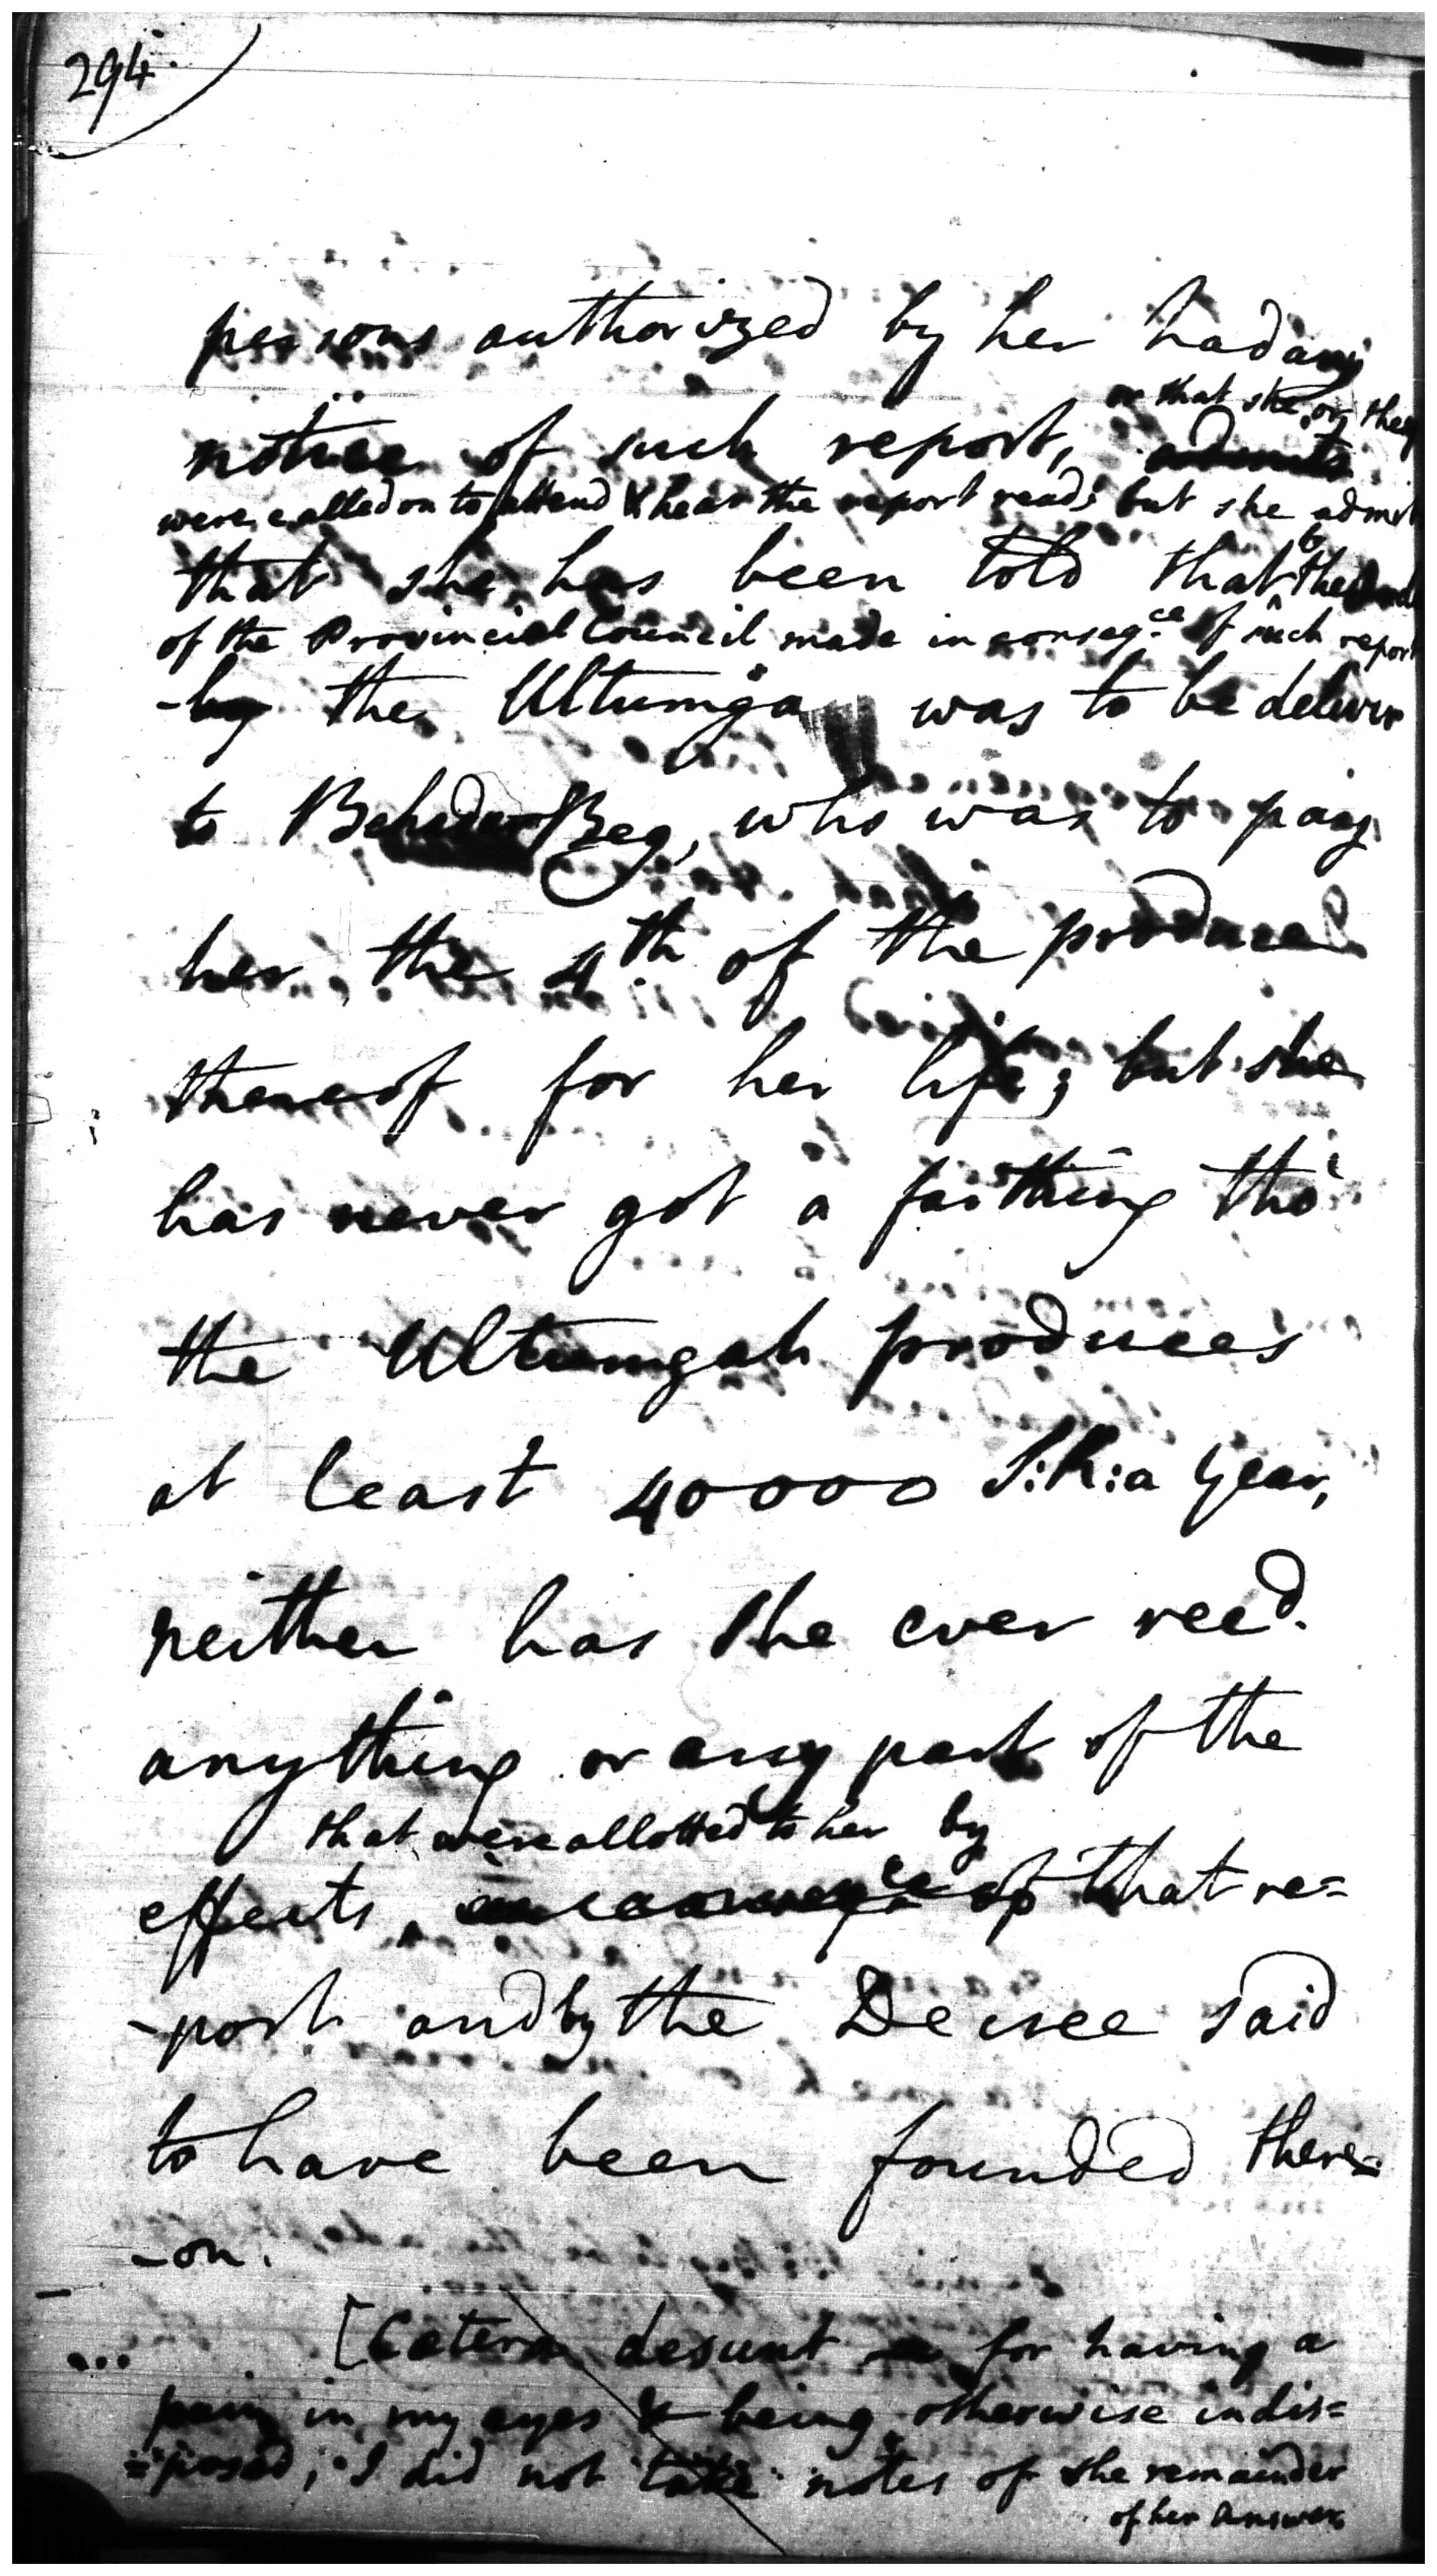 294
persons authorized by her had any
or that she or they
notice of such report, admits
were called on to attend & hear the report read; but she admit
that she has been told that by the
of the Provincial Council made in conseqce of such report
the Ultumga was to be deliver
to Behader Beg, who was to pay
her the 4th of the produce
thereof for her life; but she
has never got a farthing tho'
the Ultumgah produces
at least 40000 S:R: a year,
neither has she ever recd.
anything or any part of the
that were allotted to her by
effects, in conseqce of that re=
-port and by the Decree said
to have been founded there=
-on.
[Cetera desunt for having a
pain in my eyes & being otherwise indis=
=posed, I did not take notes of the remainder
of her answer